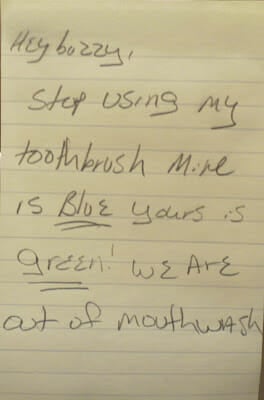 Hey bozzy,
Stop using my
toothbrush Mine
is Blue yours is
green! we Are
out of mouthwash